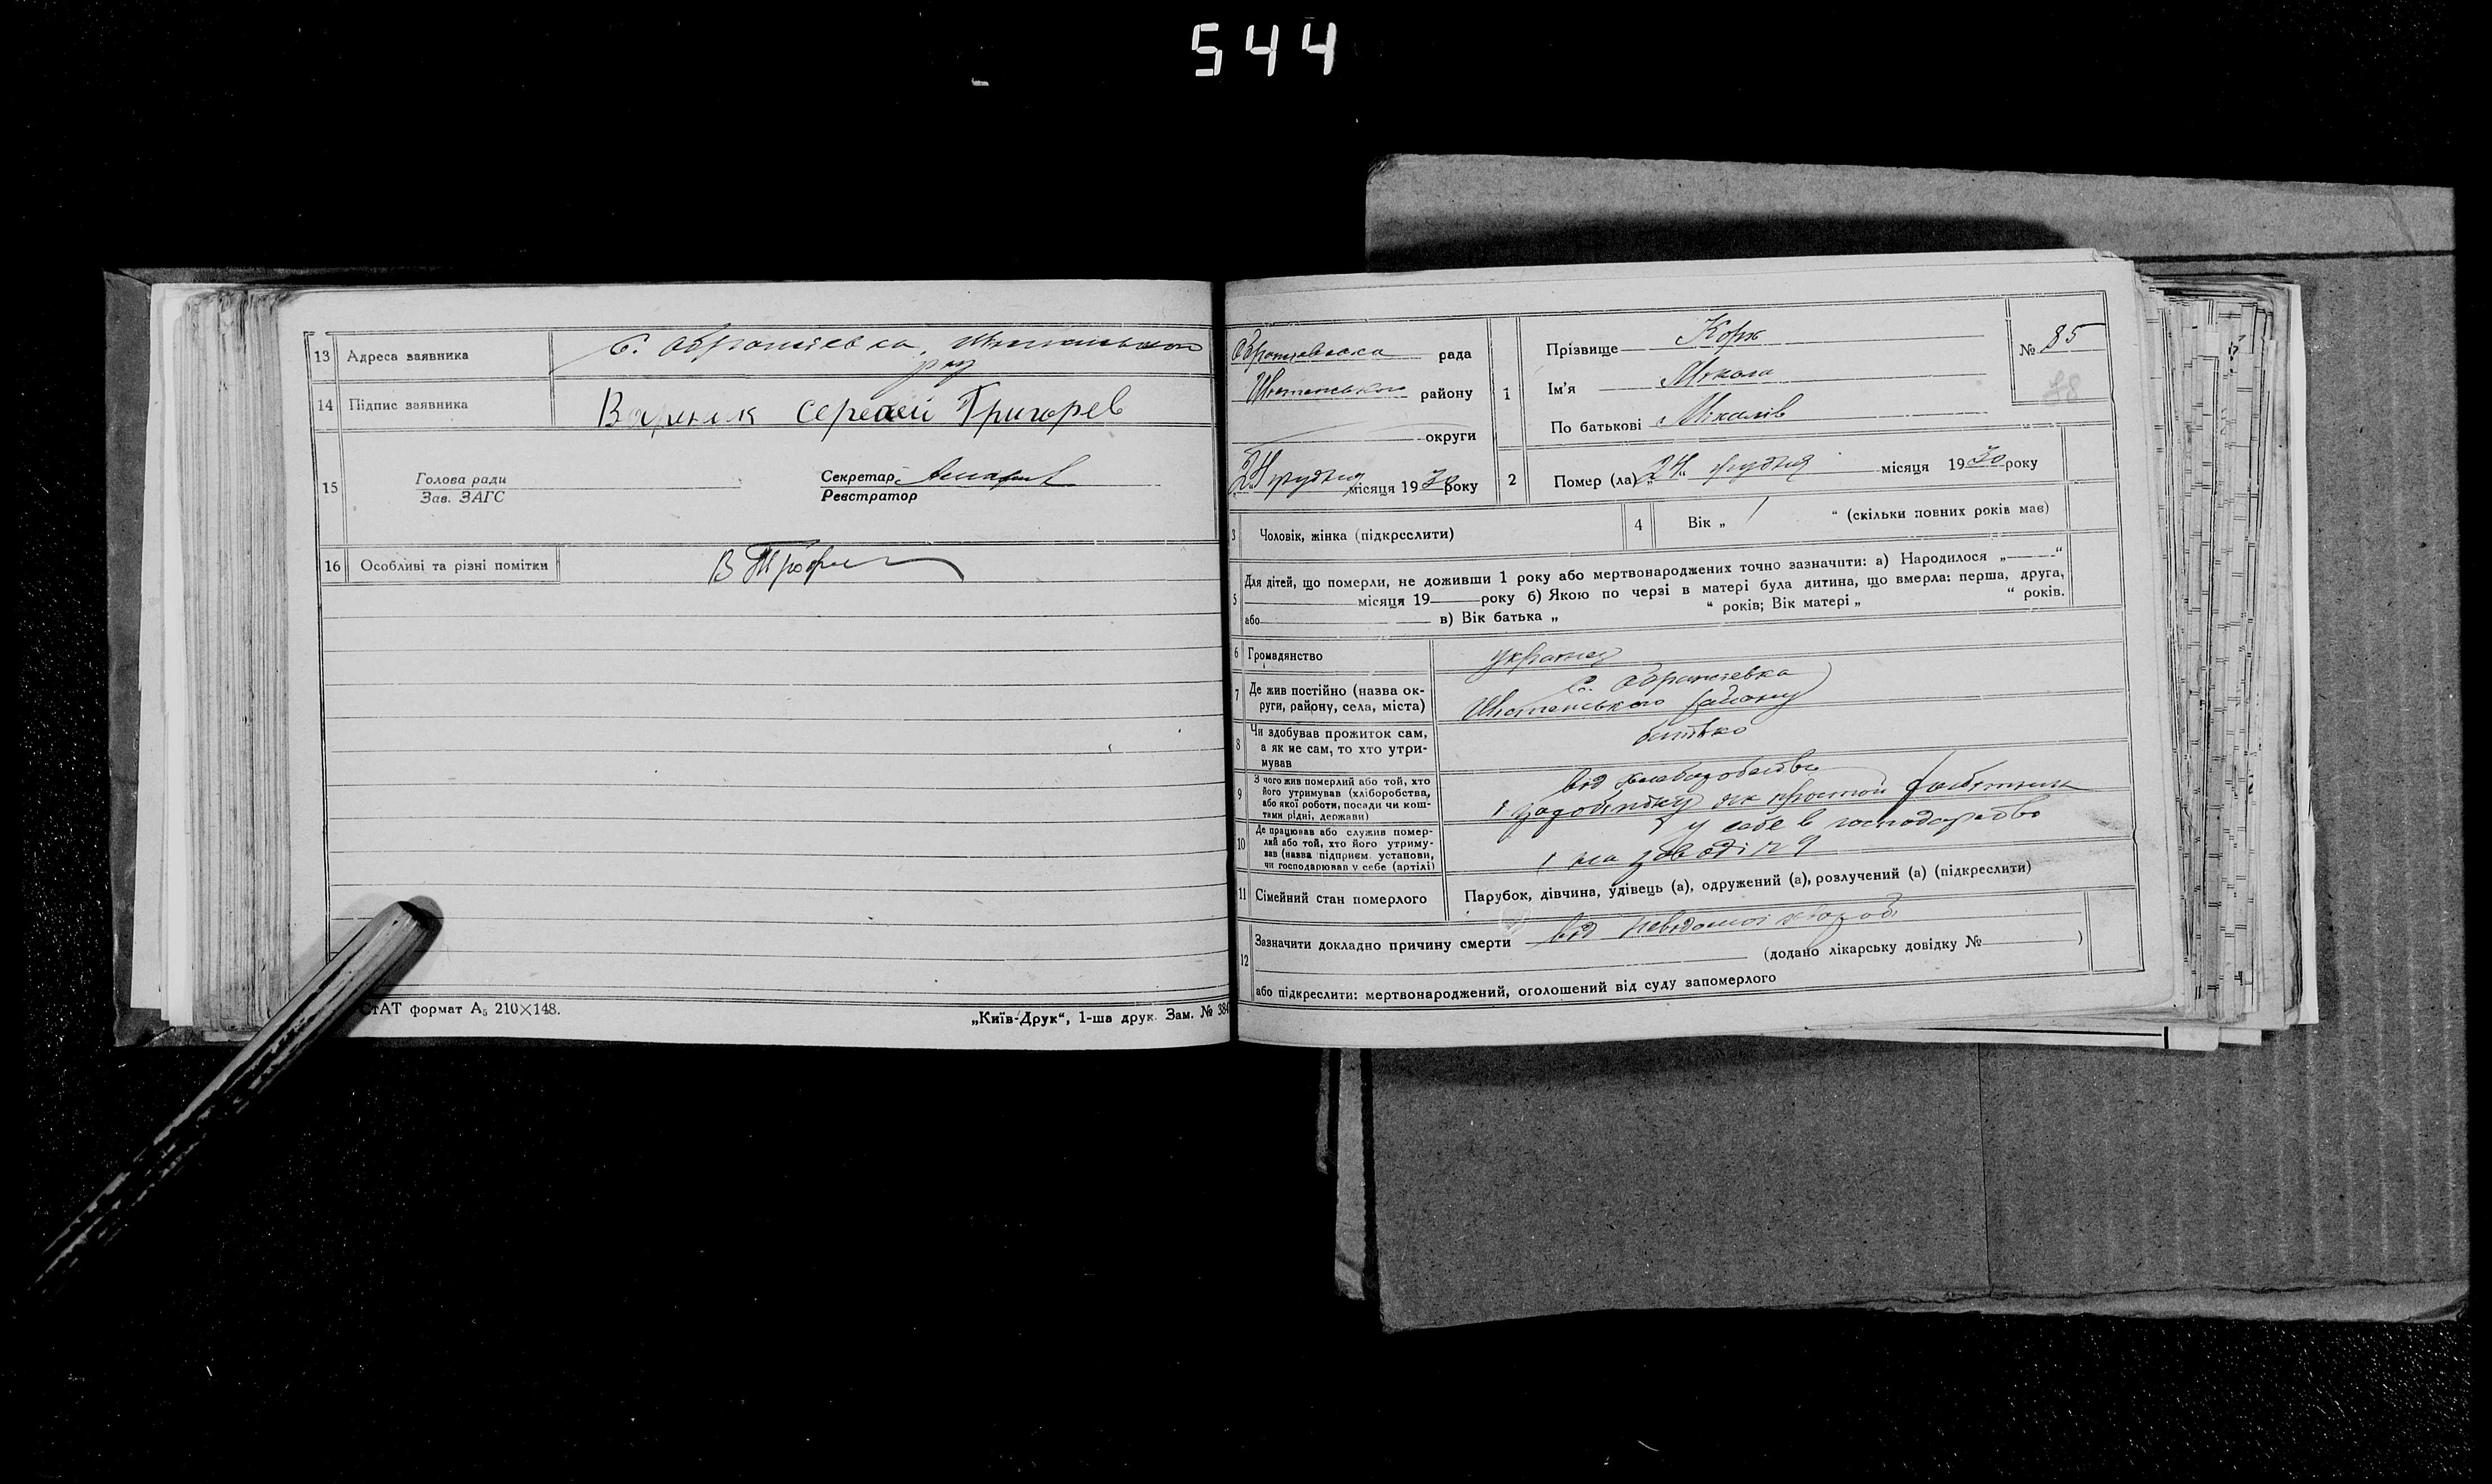 544
13 Адреса заявника С.
14 Підпис заявника Сергей Григорев
15 Голова ради Секретар
Зав. ЗАГС Реєстратор
16 Особливі та різні помітки
СтАТ формат А₅ 210×148.
„Київ-Друк“, 1-ша друк. Зам. № 384
рада
району
округи
24 грудня місяця 1930 року
1 Прізвище Корж
Ім'я Микола
По батькові Миколів
№ 85
88
2 Помер (ла) „24“ грудня місяця 1930 року
3 Чоловік, жінка (підкреслити)
4 Вік „ 1 “ (скільки повних років має)
5 Для дітей, що померли, не доживши 1 року або мертвонароджених точно зазначити: а) Народилося „ “
місяця 19 року б) Якою по черзі в матері була дитина, що вмерла: перша, друга,
або в) Вік батька „ “ років; Вік матері „ “ років.
6 Громадянство українец
7 Де жив постійно (назва ок-
руги, району, села, міста)
С.
району
8 Чи здобував прожиток сам,
а як не сам, то хто утри-
мував
батько
9 З чого жив померлий або той, хто
його утримував (хліборобства,
або якої роботи, посади чи кош-
тами рідні, держави)
від
і заробітку як простой работник
10 Де працював або служив помер-
лий або той, хто його утриму-
вав (назва підприєм. установи,
чи господарював у себе (артілі)
у себе в господарстве
і на заводі № 9
11 Сімейний стан померлого Парубок, дівчина, удівець (а), одружений (а), розлучений (а) (підкреслити)
12 Зазначити докладно причину смерти від невідомої хвороби
(додано лікарську довідку № )
або підкреслити: мертвонароджений, оголошений від суду запомерлого